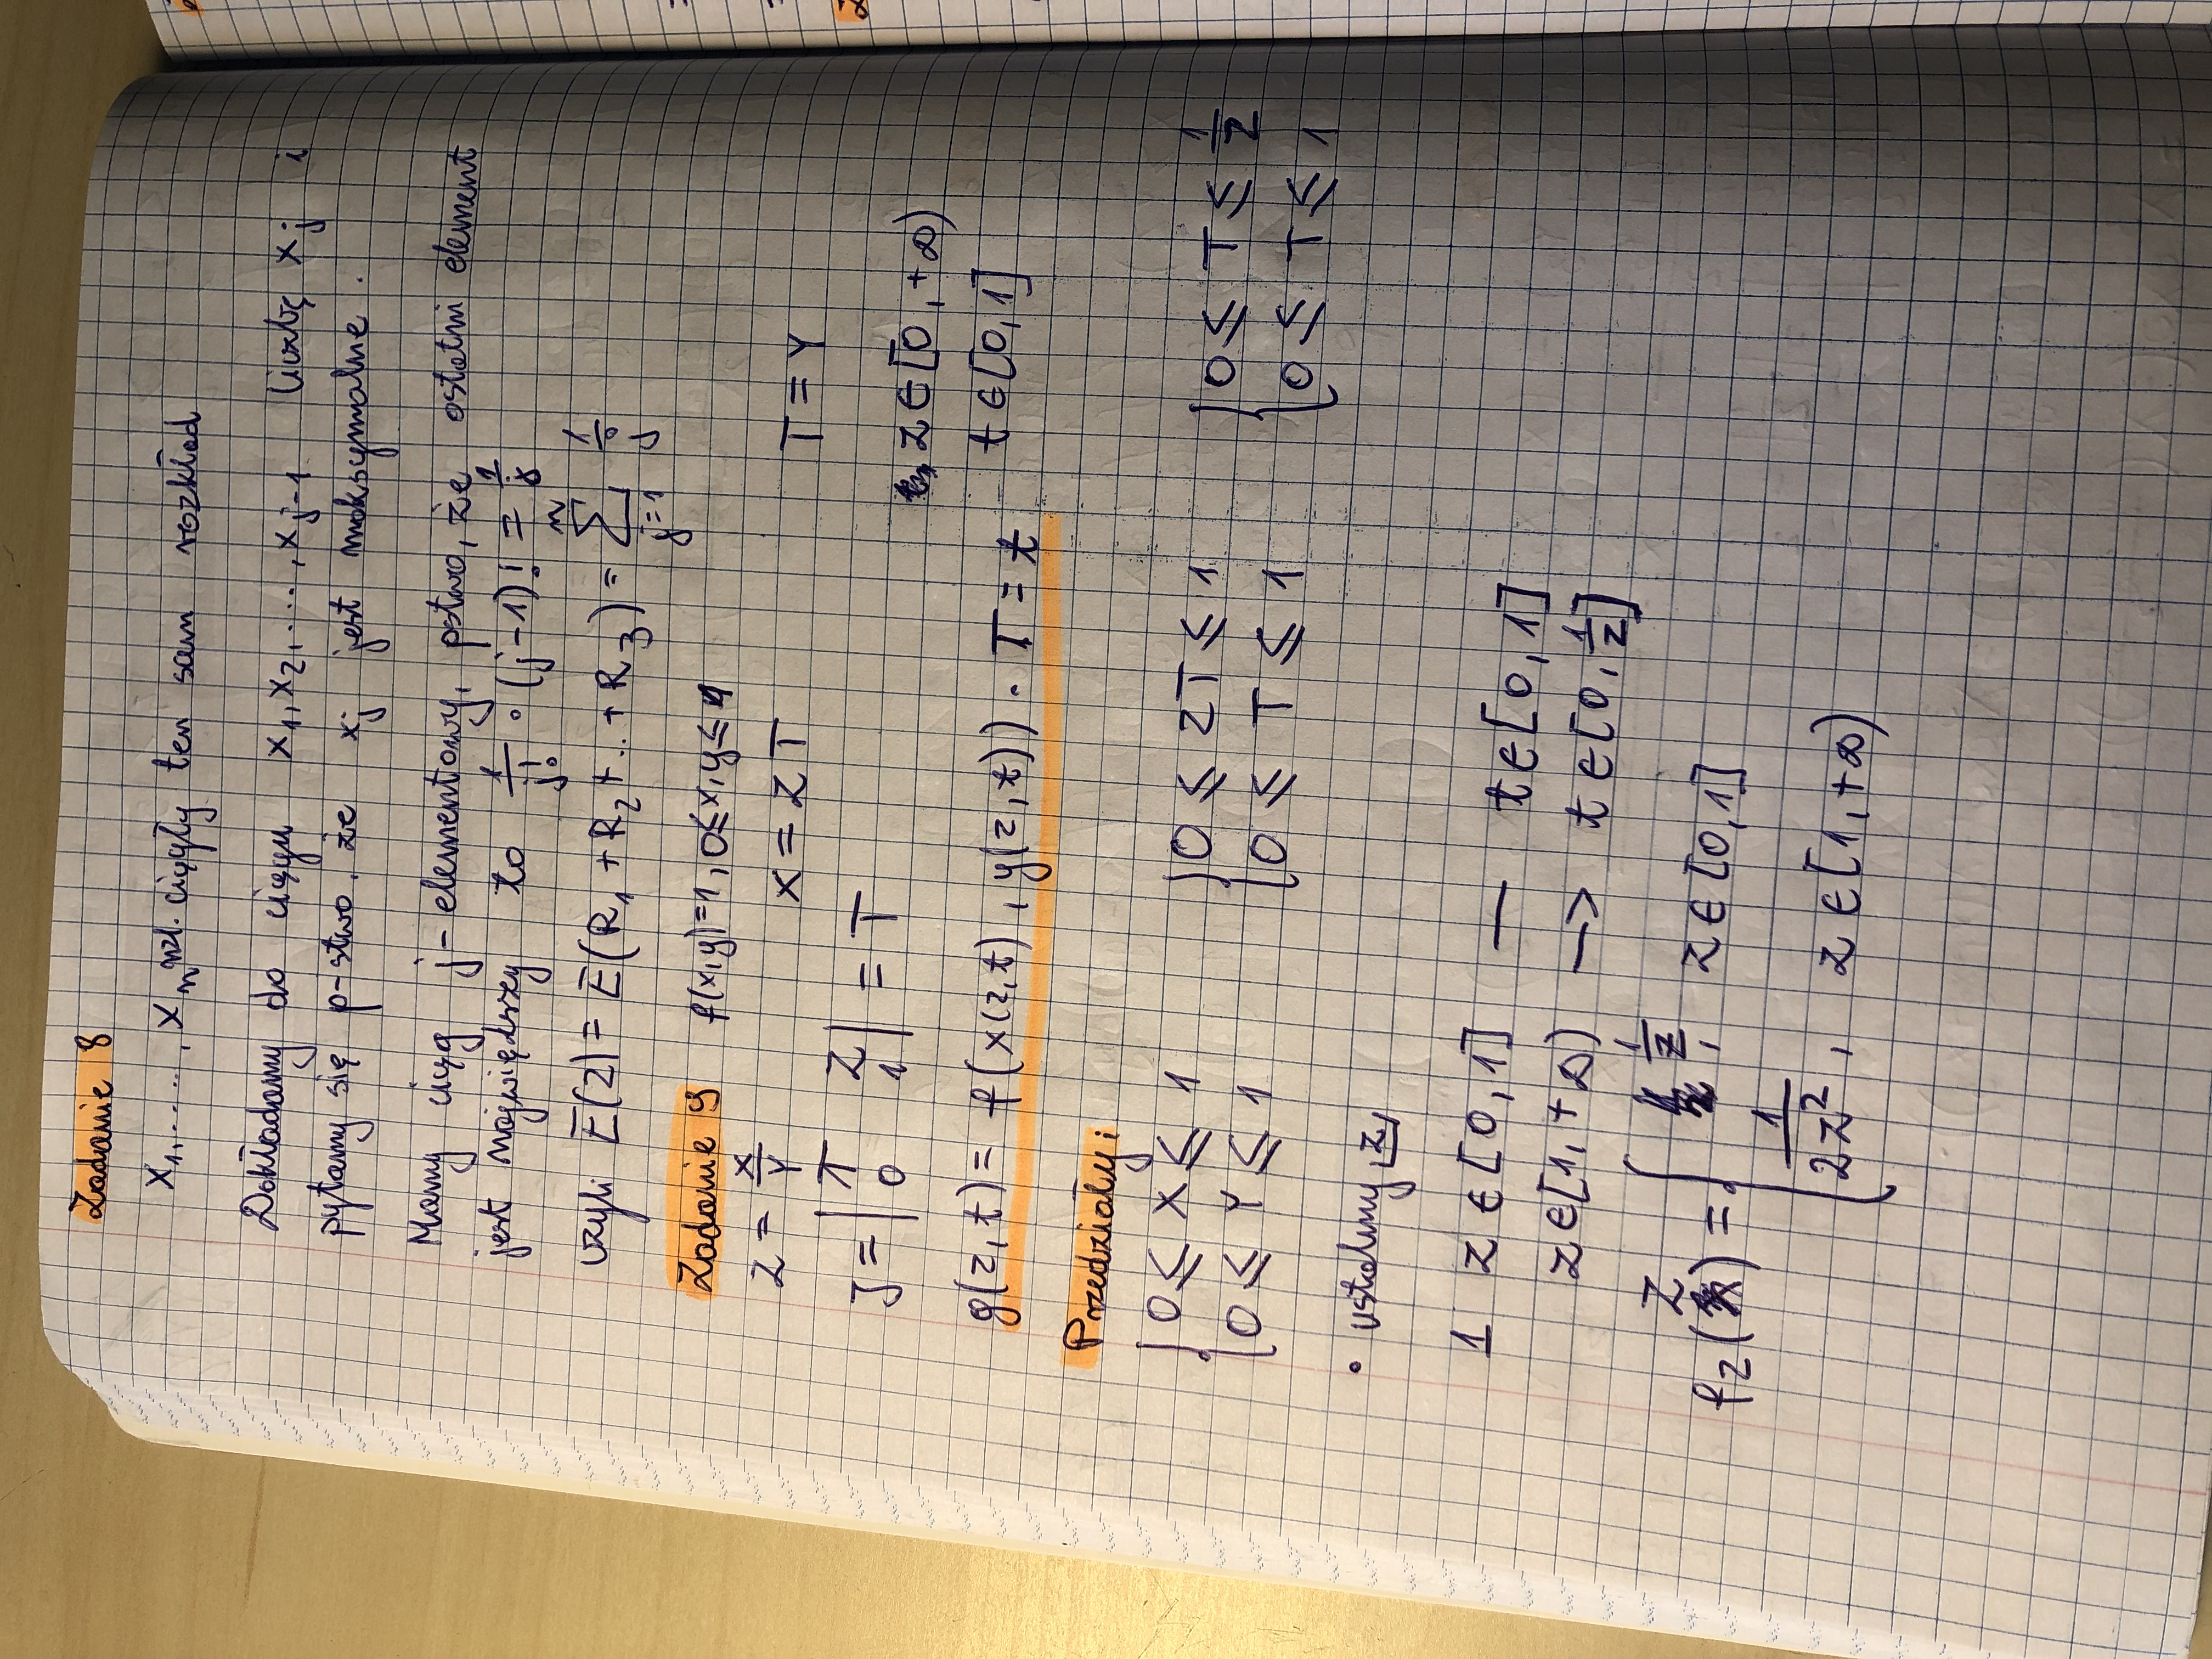 Zadanie 8
X₁, ....., Xₙ nzl. ciągły ten sam rozkład
Dokładamy do ciągu x₁, x₂, ...., x_{j-1} liczbę x_j i
pytamy się p-stwo, że x_j jest maksymalne.
Mamy ciąg j-elementowy, pstwo, że ostatni element
jest największy to 1/j! · (j-1)! = 1/j
czyli E(Z) = E(R₁ + R₂ + .. + R₃) = ∑_{j=1}^{n} 1/j
Zadanie 9 f(x,y)=1, 0≤x,y≤1
Z = X/Y X = ZT T = Y
J = |T Z| = T
|0 1|
z ∈ [0, +∞)
g(z,t) = f(x(z,t), y(z,t)) · T = t t ∈ [0,1]
Przedziały:
{0 ≤ X ≤ 1 {0 ≤ ZT ≤ 1 {0 ≤ T ≤ 1/Z
{0 ≤ Y ≤ 1 {0 ≤ T ≤ 1 {0 ≤ T ≤ 1
• ustalmy z
1 z ∈ [0,1] — t ∈ [0,1]
z ∈ [1,+∞) —> t ∈ [0, 1/z]
f_Z(z) = { 1/z, z ∈ [0,1]
1/2z², z ∈ [1,+∞)